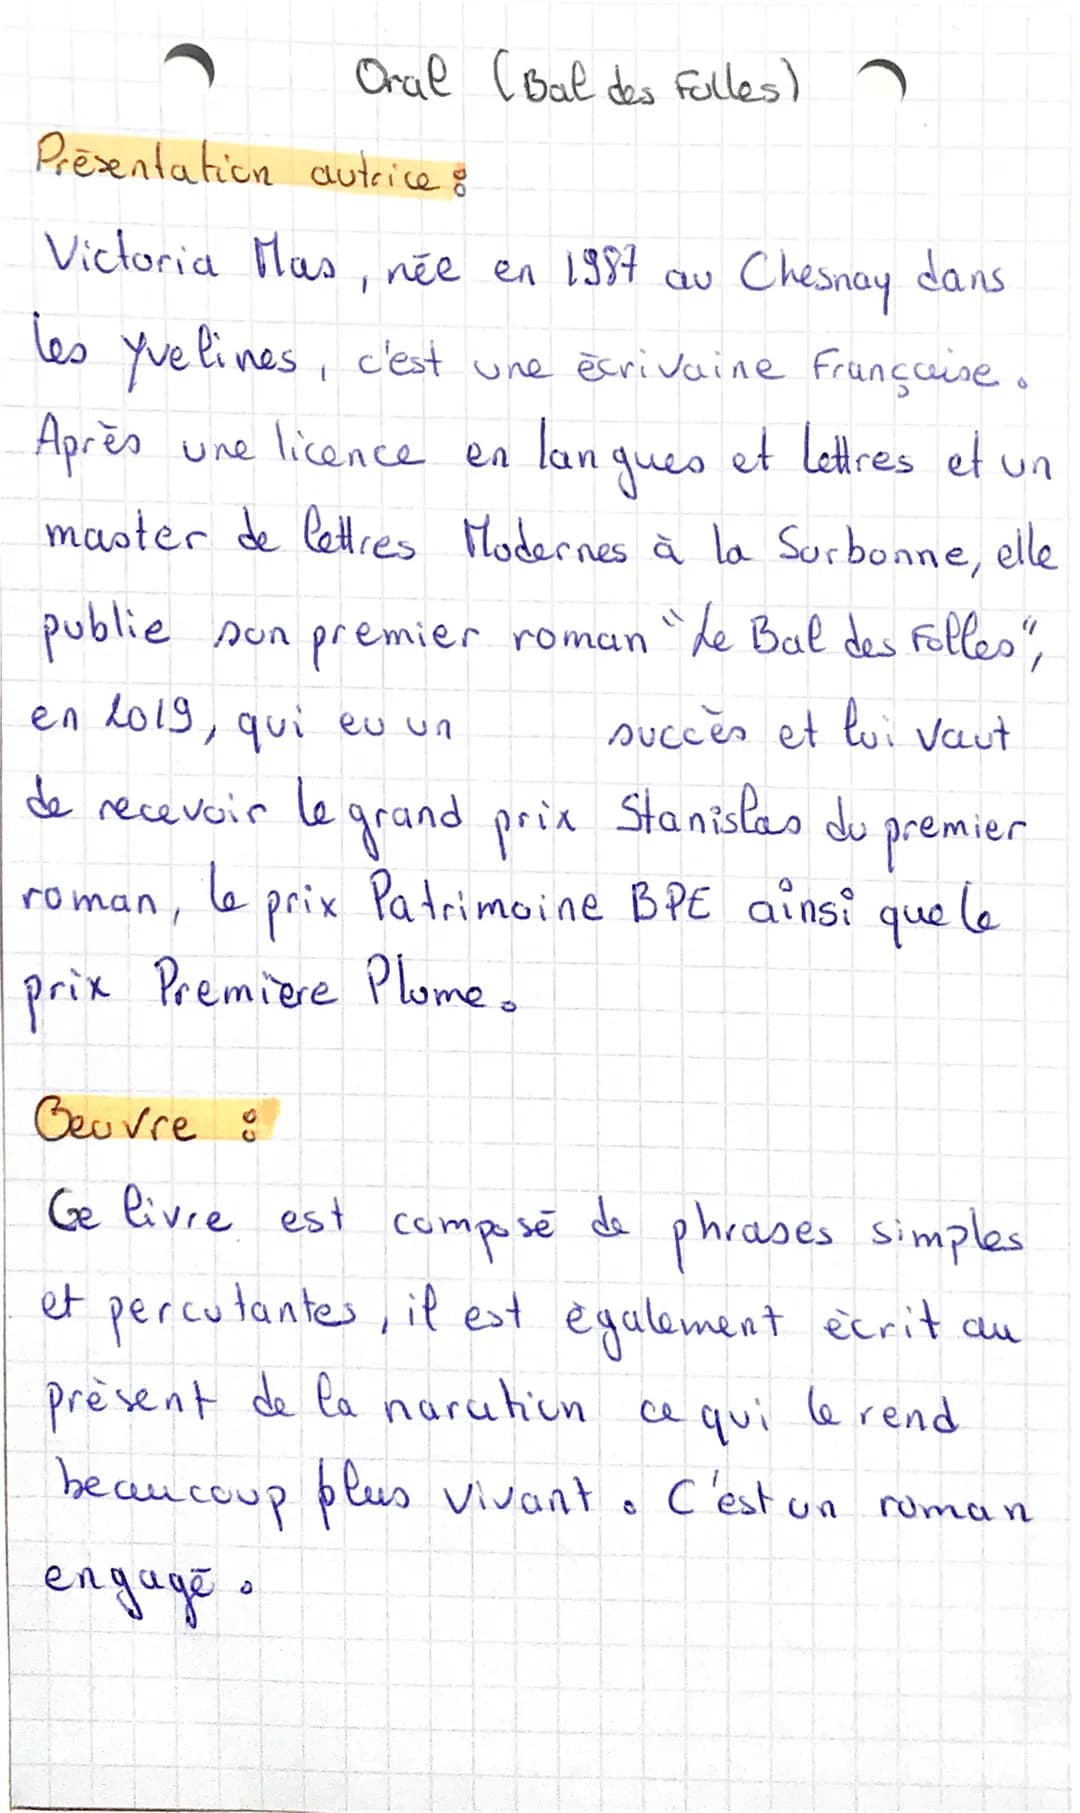 Oral (Bal des Folles)
Présentation autrice :
Victoria Mas, née en 1987 au Chesnay dans
les yvelines, c'est une écrivaine Française.
Après une licence en langues et lettres et un
master de lettres Modernes à la Sorbonne, elle
publie son premier roman "Le Bal des Folles",
en 2019, qui eu un succès et lui vaut
de recevoir le grand prix Stanislas du premier
roman, le prix Patrimoine BPE ainsi que le
prix Première Plume.
Oeuvre :
Ce livre est composé de phrases simples
et percutantes, il est également écrit au
présent de la naration ce qui le rend
beaucoup plus vivant. C'est un roman
engagé.